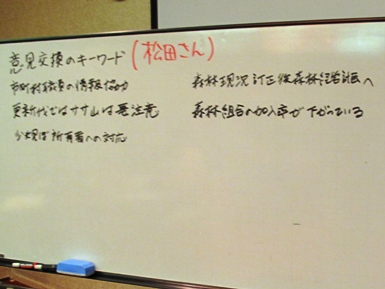 意見交換のキーワード（松田さん）
市町村職員の情報協力
更新伐ではササ山は要注意
所有者への対応
森林現況訂正後森林経営計画へ
森林組合の加入率が下がっている